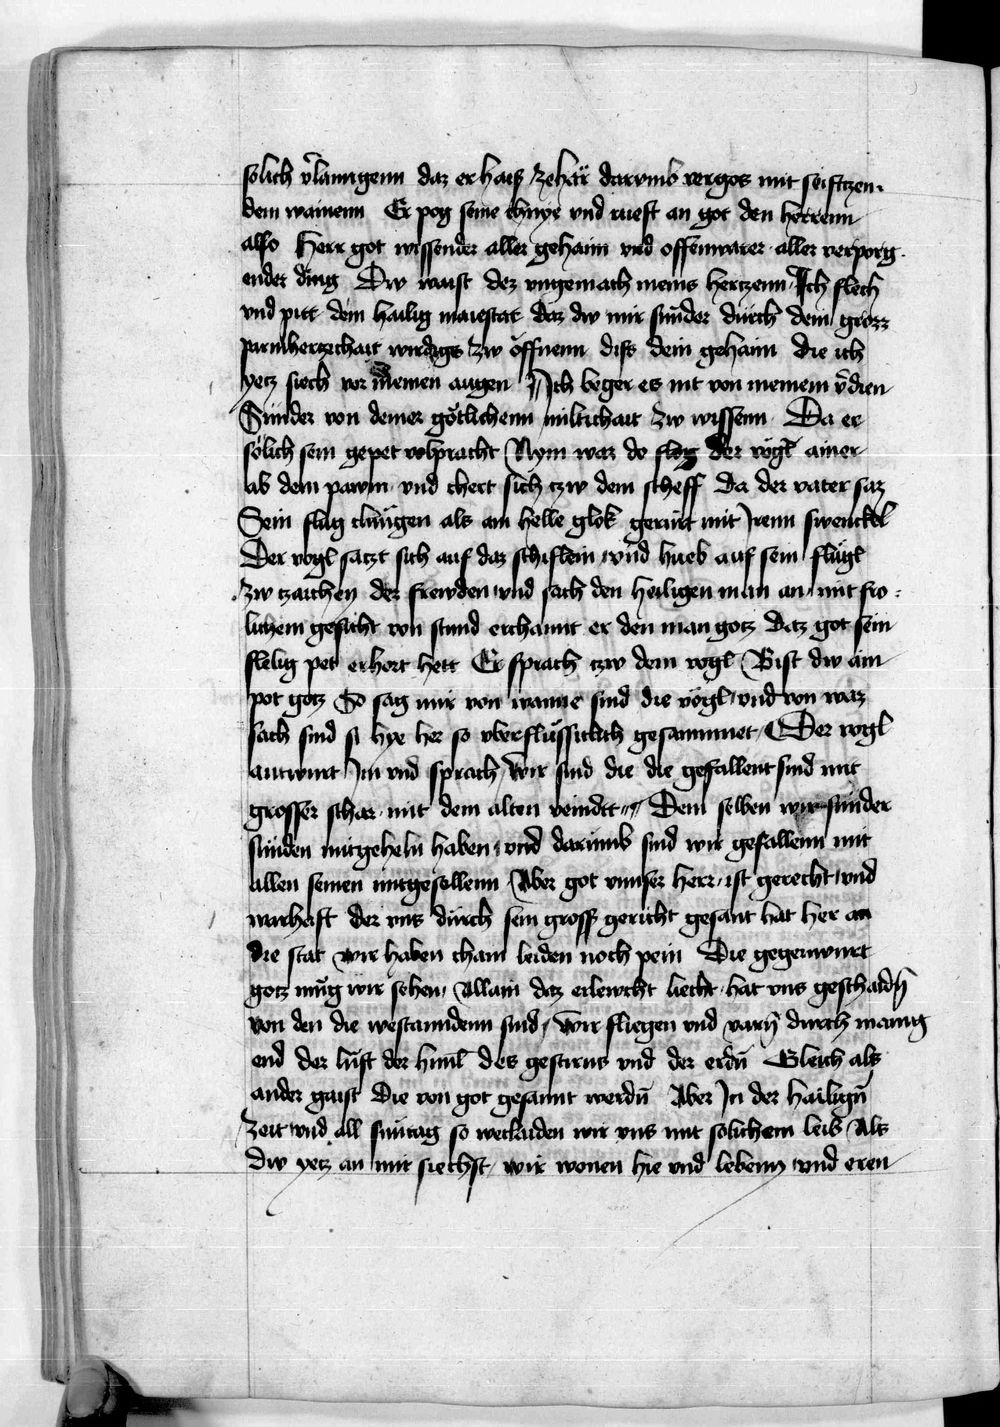 solich v̄lanngenn daz er haiß zehär darvmb vergos mit seifftzen
dem wainenn Er pog seine chnye vnd rueft an got den herrenn
also Herr got wissender aller gehaim vnd offenwarer aller verporg
ender ding Dw waist dez vngemach meins hertzenn Ich flech
vnd pitt dein hailig maiestat daz dw mir sunder durch dein grozz
parmhertzichait wirdigs zw öffnenn diss dein gehaim die ich
yetz siech vor meinen augen Ich beger es nit von meinem v̄dien
Sunder von deiner götlichenn miltichait zw wissenn Da er
sölich sein gepet volpracht Nym war do flog der vögl ainer
ab dem pawm vnd chert sich tzw dem scheff da der vater saz
Sein flüg clungen als ain helle glok gerürt mit Irenn swenckel
Der vogl satzt sich auf daz schiflein vnd hueb auf sein flügl
zw tzaichen der frewden vnd sach den heiligen man an mit fro
lichem gesicht von stund erchannt er den man gotz daz got sein
flelig pet erhort hett Er sprach tzw dem vogl Bist dw ain
pot gotz So sag mir von wanne sind die vögl vnd von waz
sach sind si hye her so vberflüssiclich gesammet Der vogl
antwurt Im vnd sprach wir sind die die gefallent sind mit
grosser schar mit dem alten veindtt Dem selben wir sunder
sunden mitgeheln haben vnd darumb sind wir gefallenn mit
allen seinen mitgesellenn Aber got vnnser herr ist gerecht vnd
warhaft der vns durch sein gross gericht gesant hat her an
die stat wir haben chain leiden noch pein Die gegenwurt
gotz müg wir sehen Allain daz erlewcht liecht hat vns geschaidn̄
von den die westanndenn sind wir fliegen vnd varn̄ durch manig
end der lüft der himl des gestirns vnd der erdn̄ Gleich als
ander gaist Die von got gesannt werdn̄ Aber In der hailign̄
zeit vnd all suntag so beclaiden wir vns mit solichem leib Als
dw yetz an mir siechst wir wonen hie vnd lebenn vnd eren